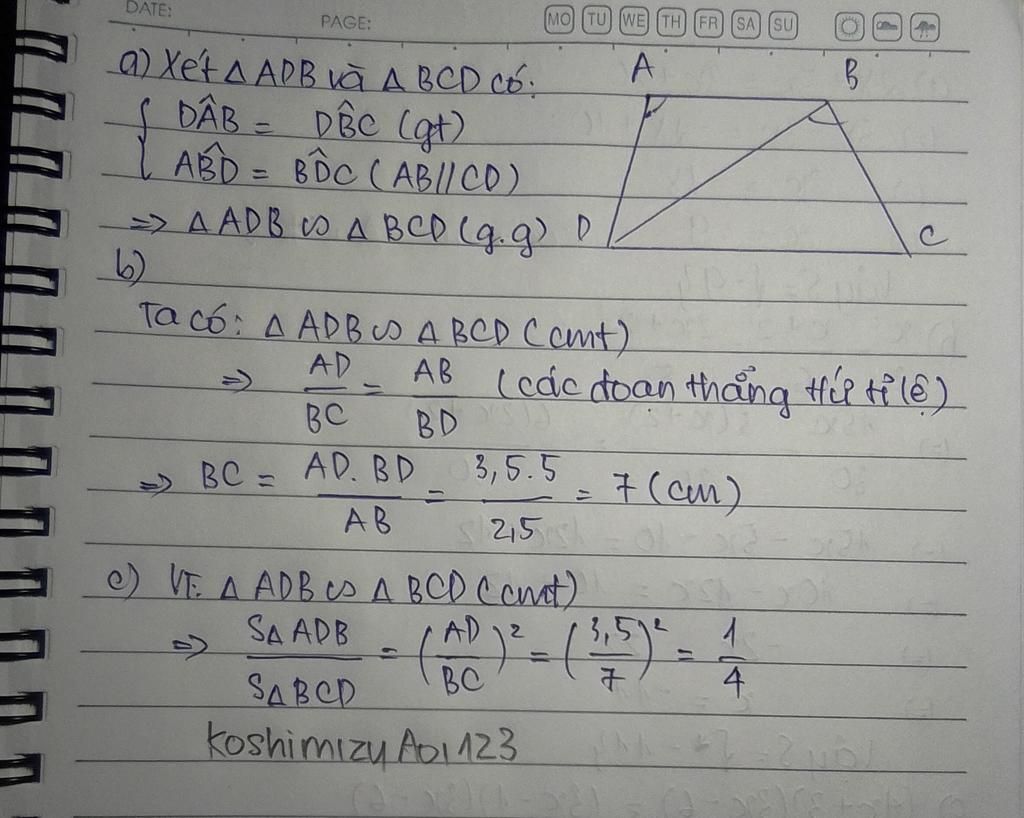 DATE:
PAGE:
MO TU WE TH FR SA SU
a) Xét Δ ADB và Δ BCD có:
{ DÂB = DB̂C (gt)
AB̂D = BD̂C (AB//CD)
=> Δ ADB ∽ Δ BCD (g.g)
A B
D C
b)
Ta có: Δ ADB ∽ Δ BCD (cmt)
=> AD/BC = AB/BD (các đoạn thẳng t/ứ tỉ lệ)
=> BC = AD.BD/AB = 3,5.5/2,5 = 7 (cm)
c) Vì Δ ADB ∽ Δ BCD (cmt)
=> SΔADB/SΔBCD = (AD/BC)² = (3,5/7)² = 1/4
KoshimizuAoi123